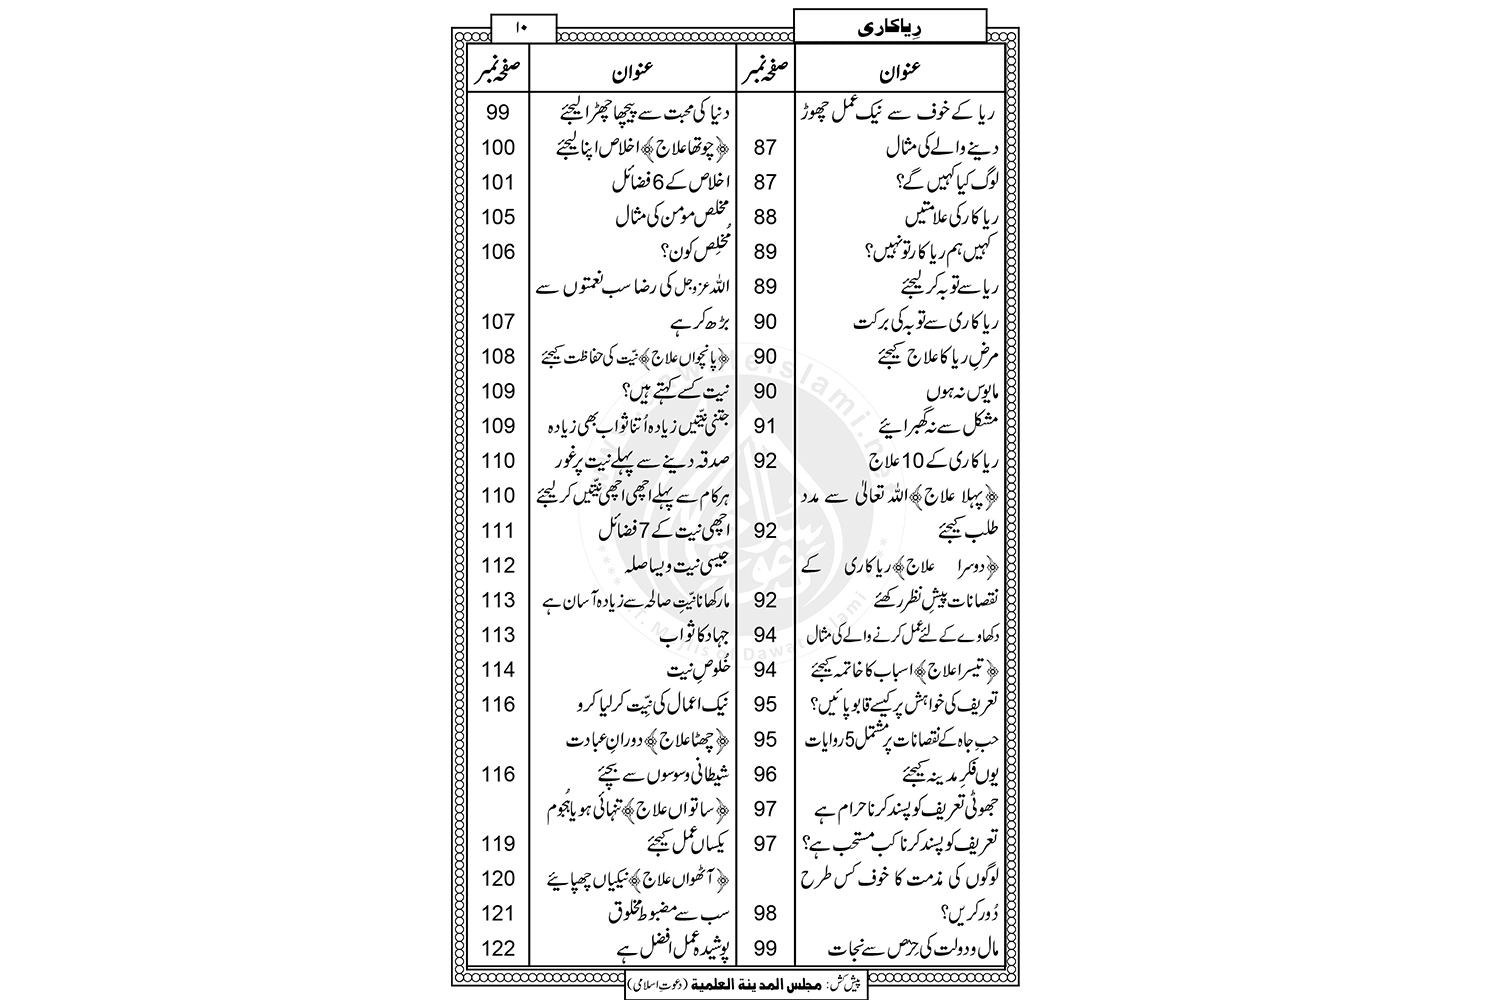 رِیاکاری
١٠
عنوان صفحہ نمبر
ریا کے خوف سے نیک عمل چھوڑ
دینے والے کی مثال 87
لوگ کیا کہیں گے؟ 87
ریاکار کی علامتیں 88
کہیں ہم ریاکار تو نہیں؟ 89
ریا سے توبہ کر لیجئے 89
ریاکاری سے توبہ کی برکت 90
مرضِ ریا کا علاج کیجئے 90
مایوس نہ ہوں 90
مشکل سے نہ گھبرائیے 91
ریاکاری کے 10 علاج 92
﴿پہلا علاج﴾ اللہ تعالیٰ سے مدد
طلب کیجئے 92
﴿دوسرا علاج﴾ ریاکاری کے
نقصانات پیشِ نظر رکھئے 92
دکھاوے کے لئے عمل کرنے والے کی مثال 94
﴿تیسرا علاج﴾ اسباب کا خاتمہ کیجئے 94
تعریف کی خواہش پر کیسے قابو پائیں؟ 95
حبِ جاہ کے نقصانات پر مشتمل 5 روایات 95
یوں فکرِ مدینہ کیجئے 96
جھوٹی تعریف کو پسند کرنا حرام ہے 97
تعریف کو پسند کرنا کب مستحب ہے؟ 97
لوگوں کی مذمت کا خوف کس طرح
دُور کریں؟ 98
مال و دولت کی حِرْص سے نجات 99
عنوان صفحہ نمبر
دنیا کی محبت سے پیچھا چھڑا لیجئے 99
﴿چوتھا علاج﴾ اخلاص اپنا لیجئے 100
اخلاص کے 6 فضائل 101
مخلص مومن کی مثال 105
مُخلِص کون؟ 106
اللہ عزوجل کی رضا سب نعمتوں سے
بڑھ کر ہے 107
﴿پانچواں علاج﴾ نیّت کی حفاظت کیجئے 108
نیت کسے کہتے ہیں؟ 109
جتنی نیّتیں زیادہ اُتنا ثواب بھی زیادہ 109
صدقہ دینے سے پہلے نیت پر غور 110
ہر کام سے پہلے اچھی اچھی نیّتیں کر لیجئے 110
اچھی نیت کے 7 فضائل 111
جیسی نیت ویسا صلہ 112
مار کھانا نیّتِ صالحہ سے زیادہ آسان ہے 113
جہاد کا ثواب 113
خُلوصِ نیت 114
نیک اعمال کی نیّت کر لیا کرو 116
﴿چھٹا علاج﴾ دورانِ عبادت
شیطانی وسوسوں سے بچئے 116
﴿ساتواں علاج﴾ تنہائی ہو یا ہُجوم
یکساں عمل کیجئے 119
﴿آٹھواں علاج﴾ نیکیاں چھپائیے 120
سب سے مضبوط مخلوق 121
پوشیدہ عمل افضل ہے 122
پیش کش: مجلس المدینۃ العلمیۃ (دعوتِ اسلامی)